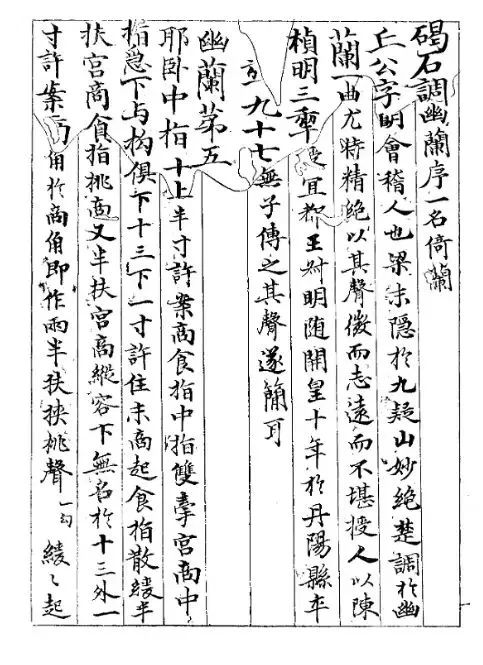 碣石調幽蘭序一名倚蘭
丘公字明會稽人也梁末隱於九疑山妙絕楚調於幽
蘭一曲尤特精絕以其聲微而志遠而不堪授人以陳
禎明三年授宜都王叔明随開皇十年於丹陽縣卒
九十七無子傳之其聲遂簡耳
幽蘭第五
耶臥中指十上半寸許案商食指中指雙牽宮商中
指急下与拘俱下十三下一寸許住末商起食指散緩半
扶宮商食指挑商又半扶宮商縱容下無名於十三外一
寸許案商角於商角即作兩半扶挾挑聲一句緩〻起